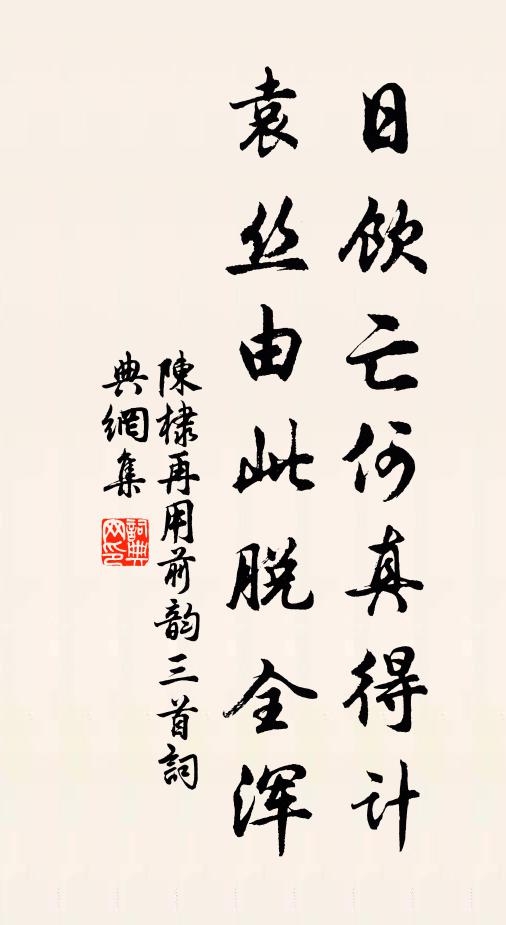 日飲亡何真得计
袁丝由此脱全浑
陳棣再用前韵三首詞
典網集
詞典网印